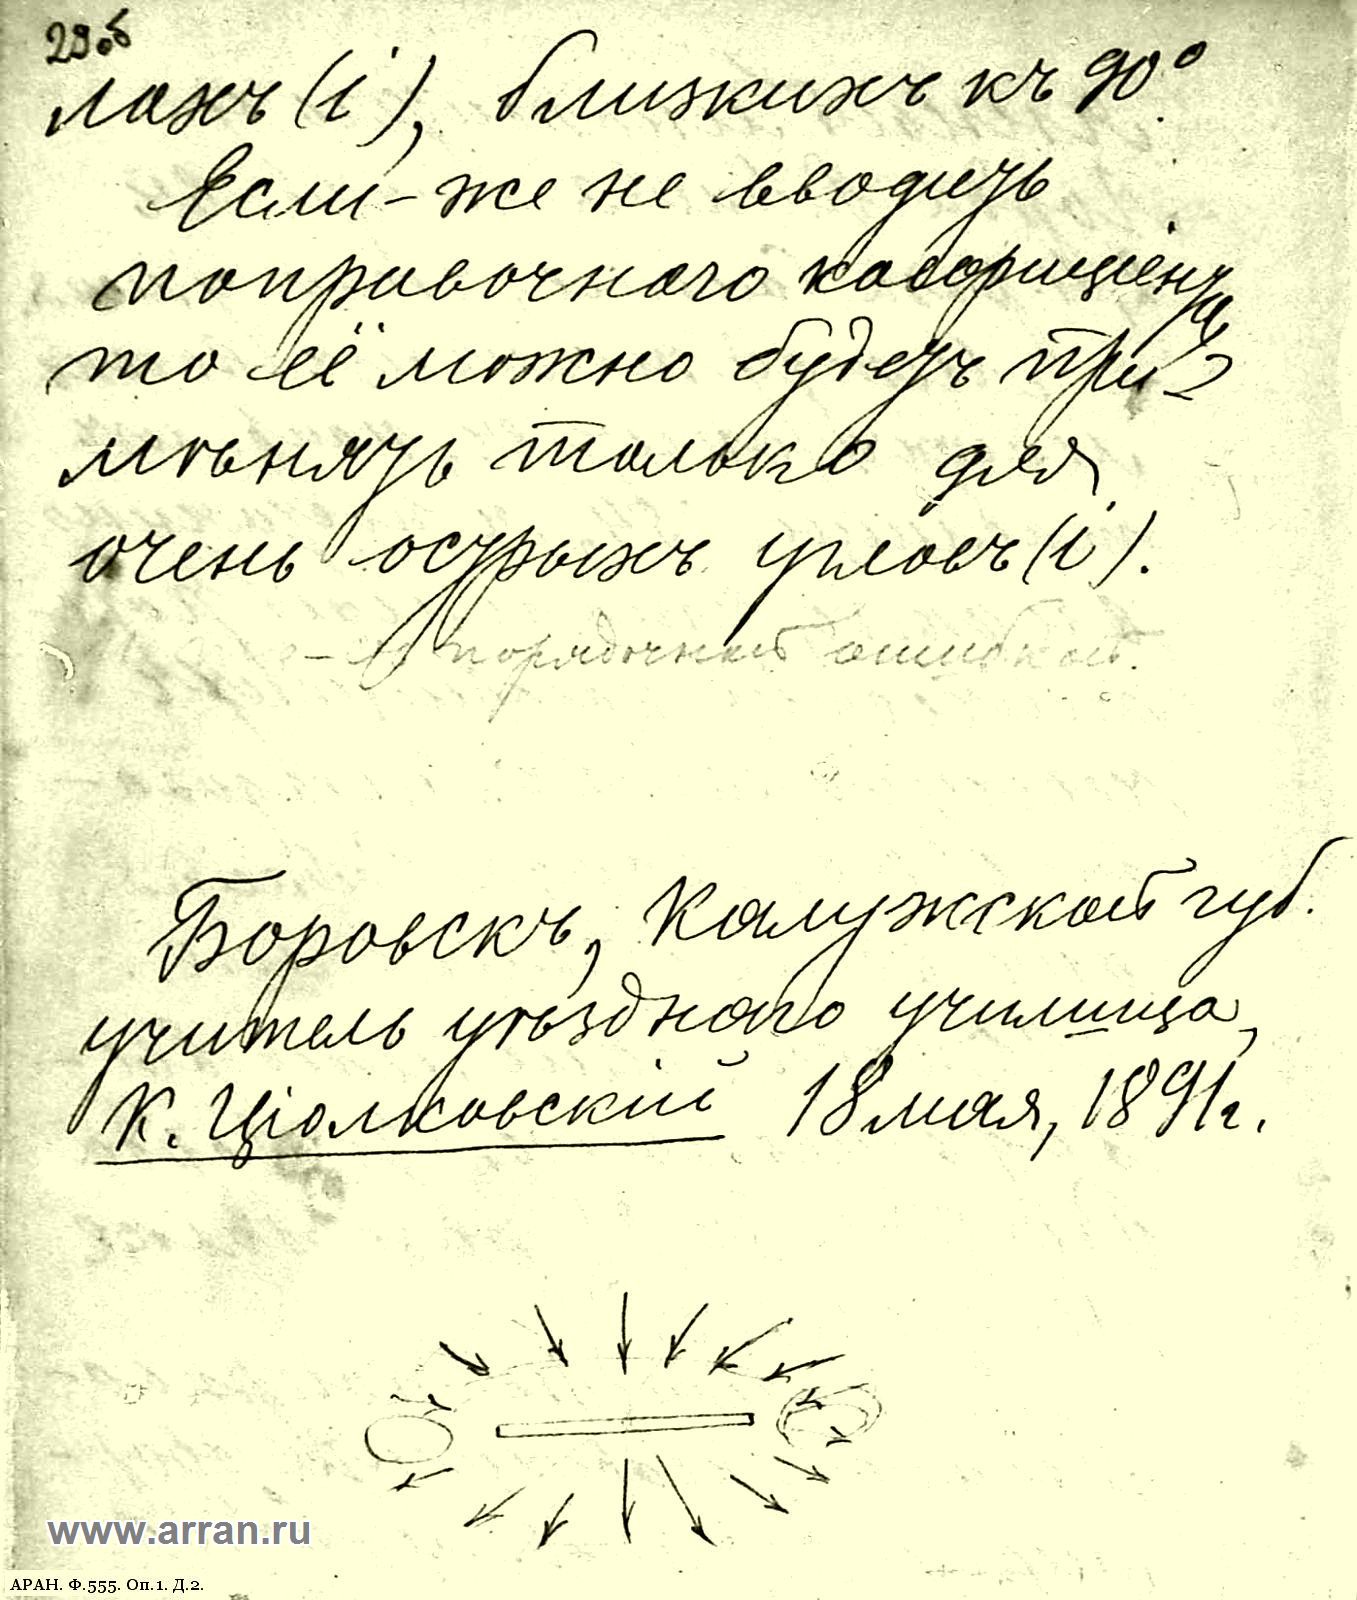 29об
лахъ (i), близкихъ къ 90°
Если-же не вводить
поправочного коэфиціента,
то её можно будетъ при
мѣнять только для
очень острыхъ угловъ (i).
порядочной ошибкой.
Боровскъ, Калужской губ.
учитель уѣздного училища,
К. Ціолковскій 18 мая, 1891г.
www.arran.ru
АРАН. Ф.555. Оп.1. Д.2.